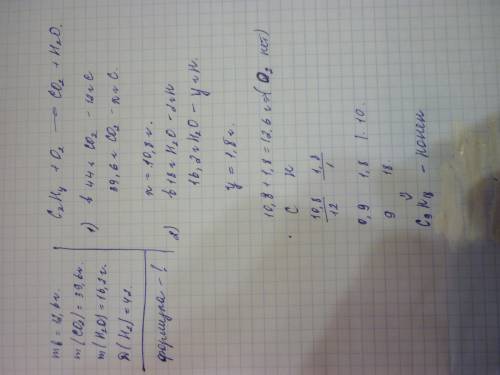 mв = 12,6г.
m(CO₂) = 39,6г.
m(H₂O) = 16,2г.
D(H₂) = 42
формула - ?
CₓHᵧ + O₂ → CO₂ + H₂O.
1) в 44г CO₂ - 12г C
39,6г CO₂ - xг C.
x = 10,8г.
2) в 18г H₂O - 2гH
16,2г H₂O - yгH.
y = 1,8г.
10,8 + 1,8 = 12,6г (O₂ нет)
C H
10,8/12 1,8/1
0,9 1,8 |·10.
9 18
↓
C₉H₁₈ - нонен